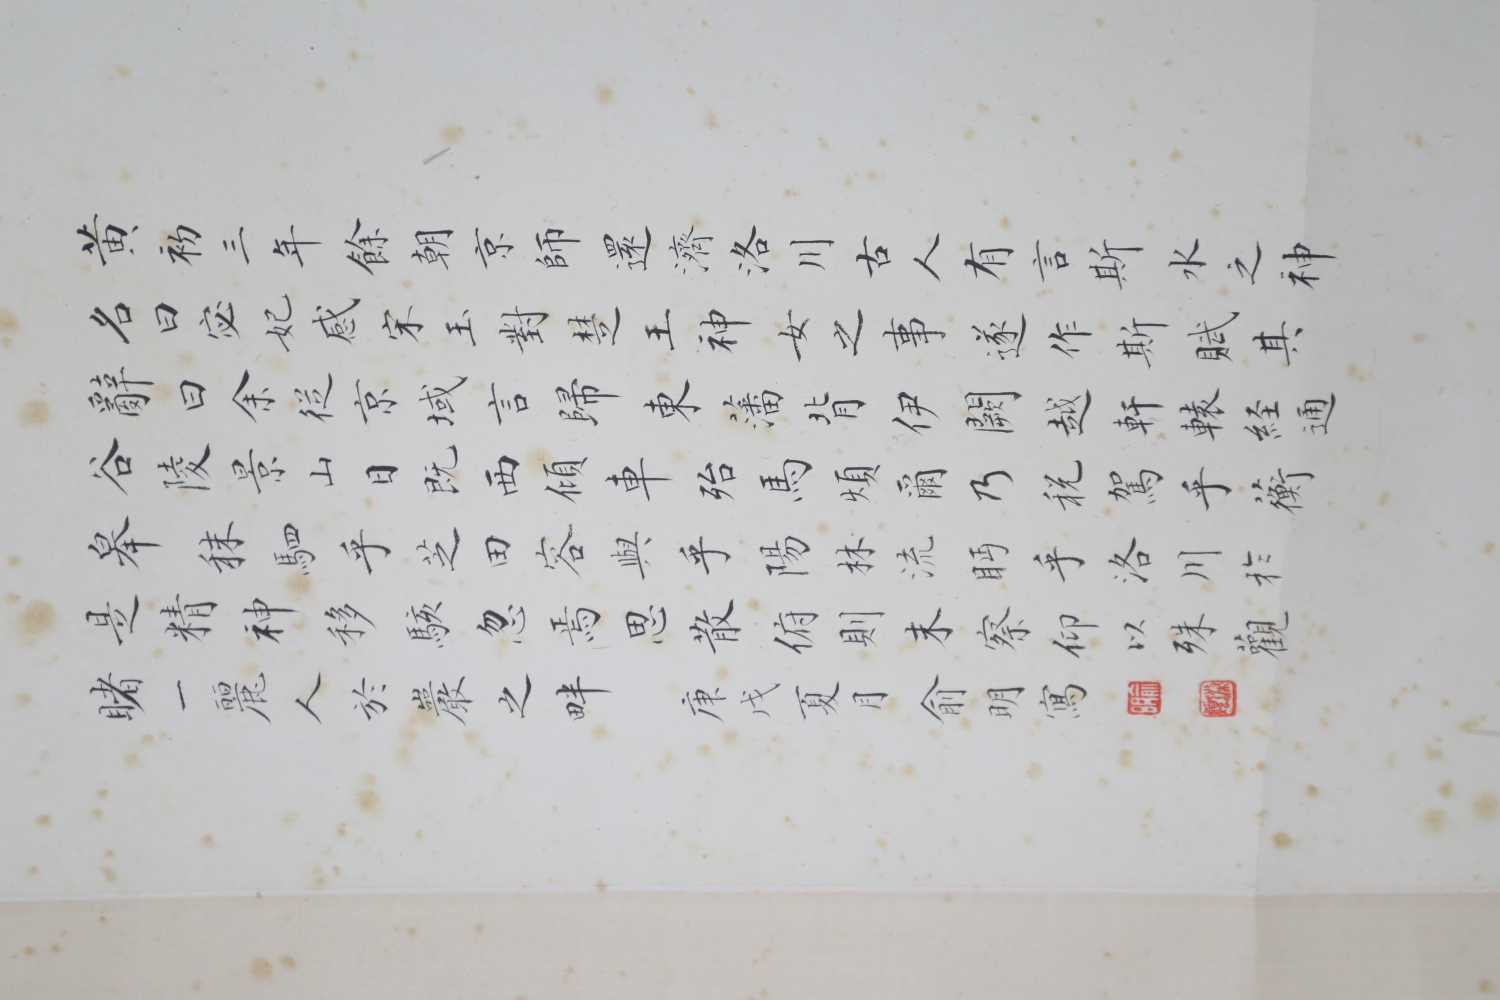 黃初三年餘朝京師還濟洛川古人有言斯水之神
名曰宓妃感宋玉對楚王神女之事遂作斯賦其
辭曰余從京域言歸東藩背伊闕越軒轅経通
谷陵景山日既西傾車殆馬煩爾乃税駕乎蘅
皋秣駟乎芝田容與乎陽林流眄乎洛川於
是精神移駭忽焉思散俯則未察仰以殊觀
睹一麗人於巖之畔 庚戌夏月俞明寫
俞明